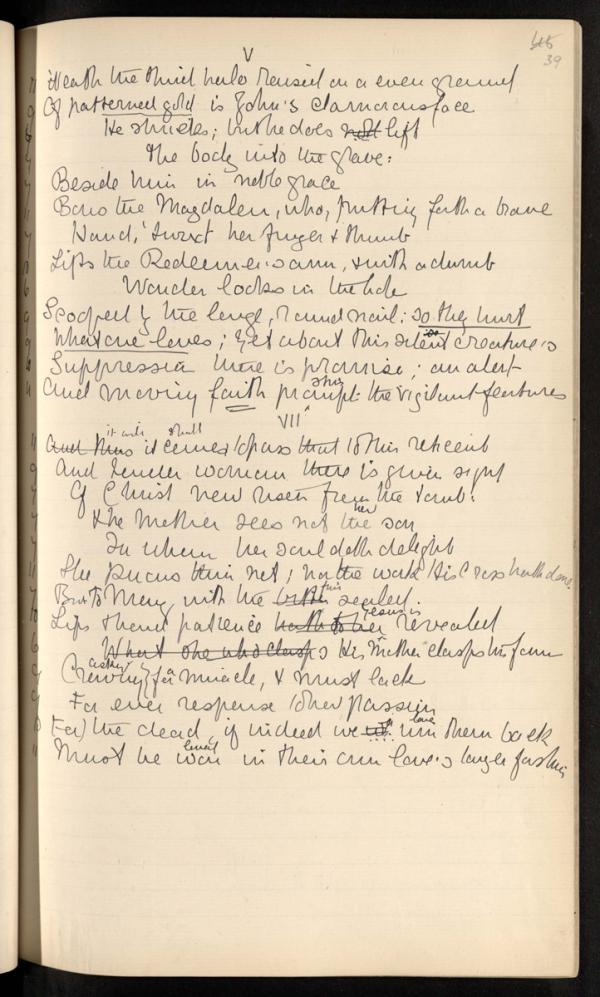 39
V
'Neath the third halo raised on a even ground
Of patterned gold is John's clamorous face
He shrieks; but he does not lift
The body into the grave:
Beside him in noble grace
Bows the Magdalen, who, putting forth a brave
Hand, 'twixt her finger & thumb
Lifts the Redeemer's arm, & with a dumb
Wonder looks in the hole
Scooped by the large, round nail: so they hurt
What one loves; yet about this silent creature's
Suppression there is promise; an alert
And moving faith prompt the vigilant features
VII
And thus it comes to pass that to this reticent
it will shall
And tender woman there is given sight
Of Christ new risen from the tomb:
& the Mother sees not the son
her
In whom her soul doth delight
She knows him not; nor the work His Cross hath done.
But to Mary with the sealed
thin
Lips & hard patience hath to her revealed
Jesus is
What one who clasps His Mother clasps the form
Craving for miracle, & must lack
as they a
For ever response to her passion
For) the dead, if indeed we win them back
love
Must be won in their own love's larger fashion